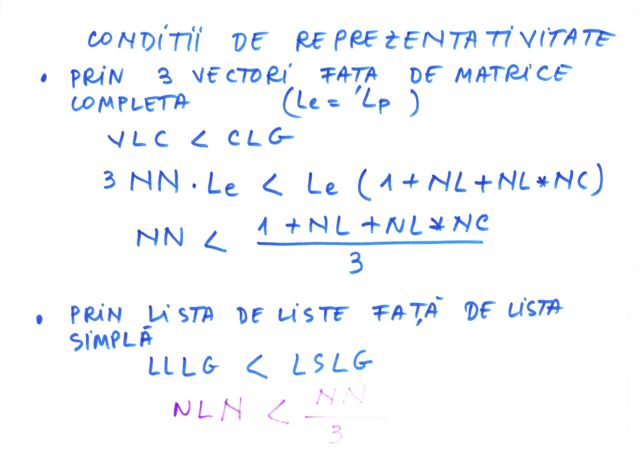 CONDITII DE REPREZENTATIVITATE
• PRIN 3 VECTORI FATA DE MATRICE
COMPLETA (Le = 'Lp )
VLC < CLG
3 NN . Le < Le ( 1 + NL + NL * NC )
NN < (1 + NL + NL * NC) / 3
• PRIN LISTA DE LISTE FAȚĂ DE LISTA
SIMPLĂ
LLLG < LSLG
NLN < NN / 3